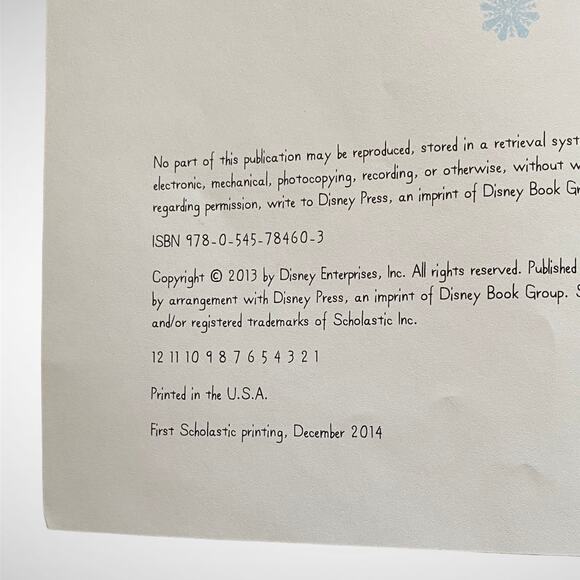 No part of this publication may be reproduced, stored in a retrieval syst
electronic, mechanical, photocopying, recording, or otherwise, without w
regarding permission, write to Disney Press, an imprint of Disney Book Gr
ISBN 978-0-545-78460-3
Copyright © 2013 by Disney Enterprises, Inc. All rights reserved. Published
by arrangement with Disney Press, an imprint of Disney Book Group. S
and/or registered trademarks of Scholastic Inc.
12 11 10 9 8 7 6 5 4 3 2 1
Printed in the U.S.A.
First Scholastic printing, December 2014